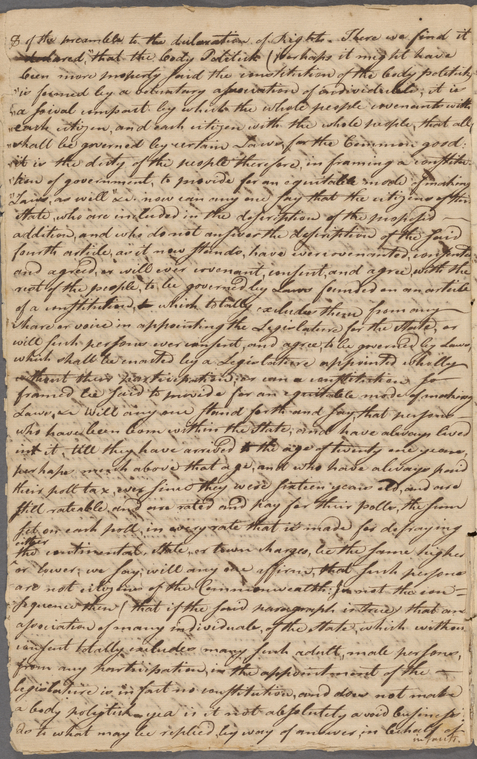 of the preamble to the declaration of Rights. There we find it
declared, "that the body Politick (perhaps it might have
been more properly said the constitution of the body politick,
"is formed by a voluntary association of individuals; it is
"a social compact by which the whole people covenants with
"each citizen, and each citizen with the whole people, that all
"shall be governed by certain Laws for the Common good:
"it is the duty of the people therefore, in framing a constitu-
"tion of government, to provide for an equitable mode of making
"Laws, as well &c. now can any one say that the citizens of this
State, who are included in the description of the proposed
addition, and who do not answer the description of the said
fourth article, as it now stands, have ever covenanted, consented
and agreed, or will ever covenant, consent, and agree with the
rest of the people, to be governed by Laws founded on an article
of a constitution, which totally excludes them from any
share or voice in appointing the Legislature for the State, or
will such persons ever consent, and agree, to be governed by Laws,
which shall be enacted by a Legislature appointed wholly
without their participation; or can a constitution so
framed be said to provide for an equitable mode of making
Laws, &c. Will any one stand forth and say, that persons
who have been born within the State, and have always lived
in it, till they have arrived to the age of twenty one years,
perhaps much above that age, and who have always paid
their poll tax, ever since they were sixteen years old, and are
still rateable, and are rated and pay for their polls, the sum
set on each poll, in every rate that is made for defraying
either
the continental, State, or town charges, be the same higher
or lower; we say, will any one affirm, that such persons
are not citizens of the Commonwealth: is not the con=
sequence then (that if the said paragraph is true) that an
association of many individuals, of the State, which without
consent totally excludes many such adult, male persons,
from any participation, in the appointment of the
legislature is, in fact no constitution, and does not make
a body politick yea is it not absolutely a void business:
As to what may be replied, by way of answer, in behalf of